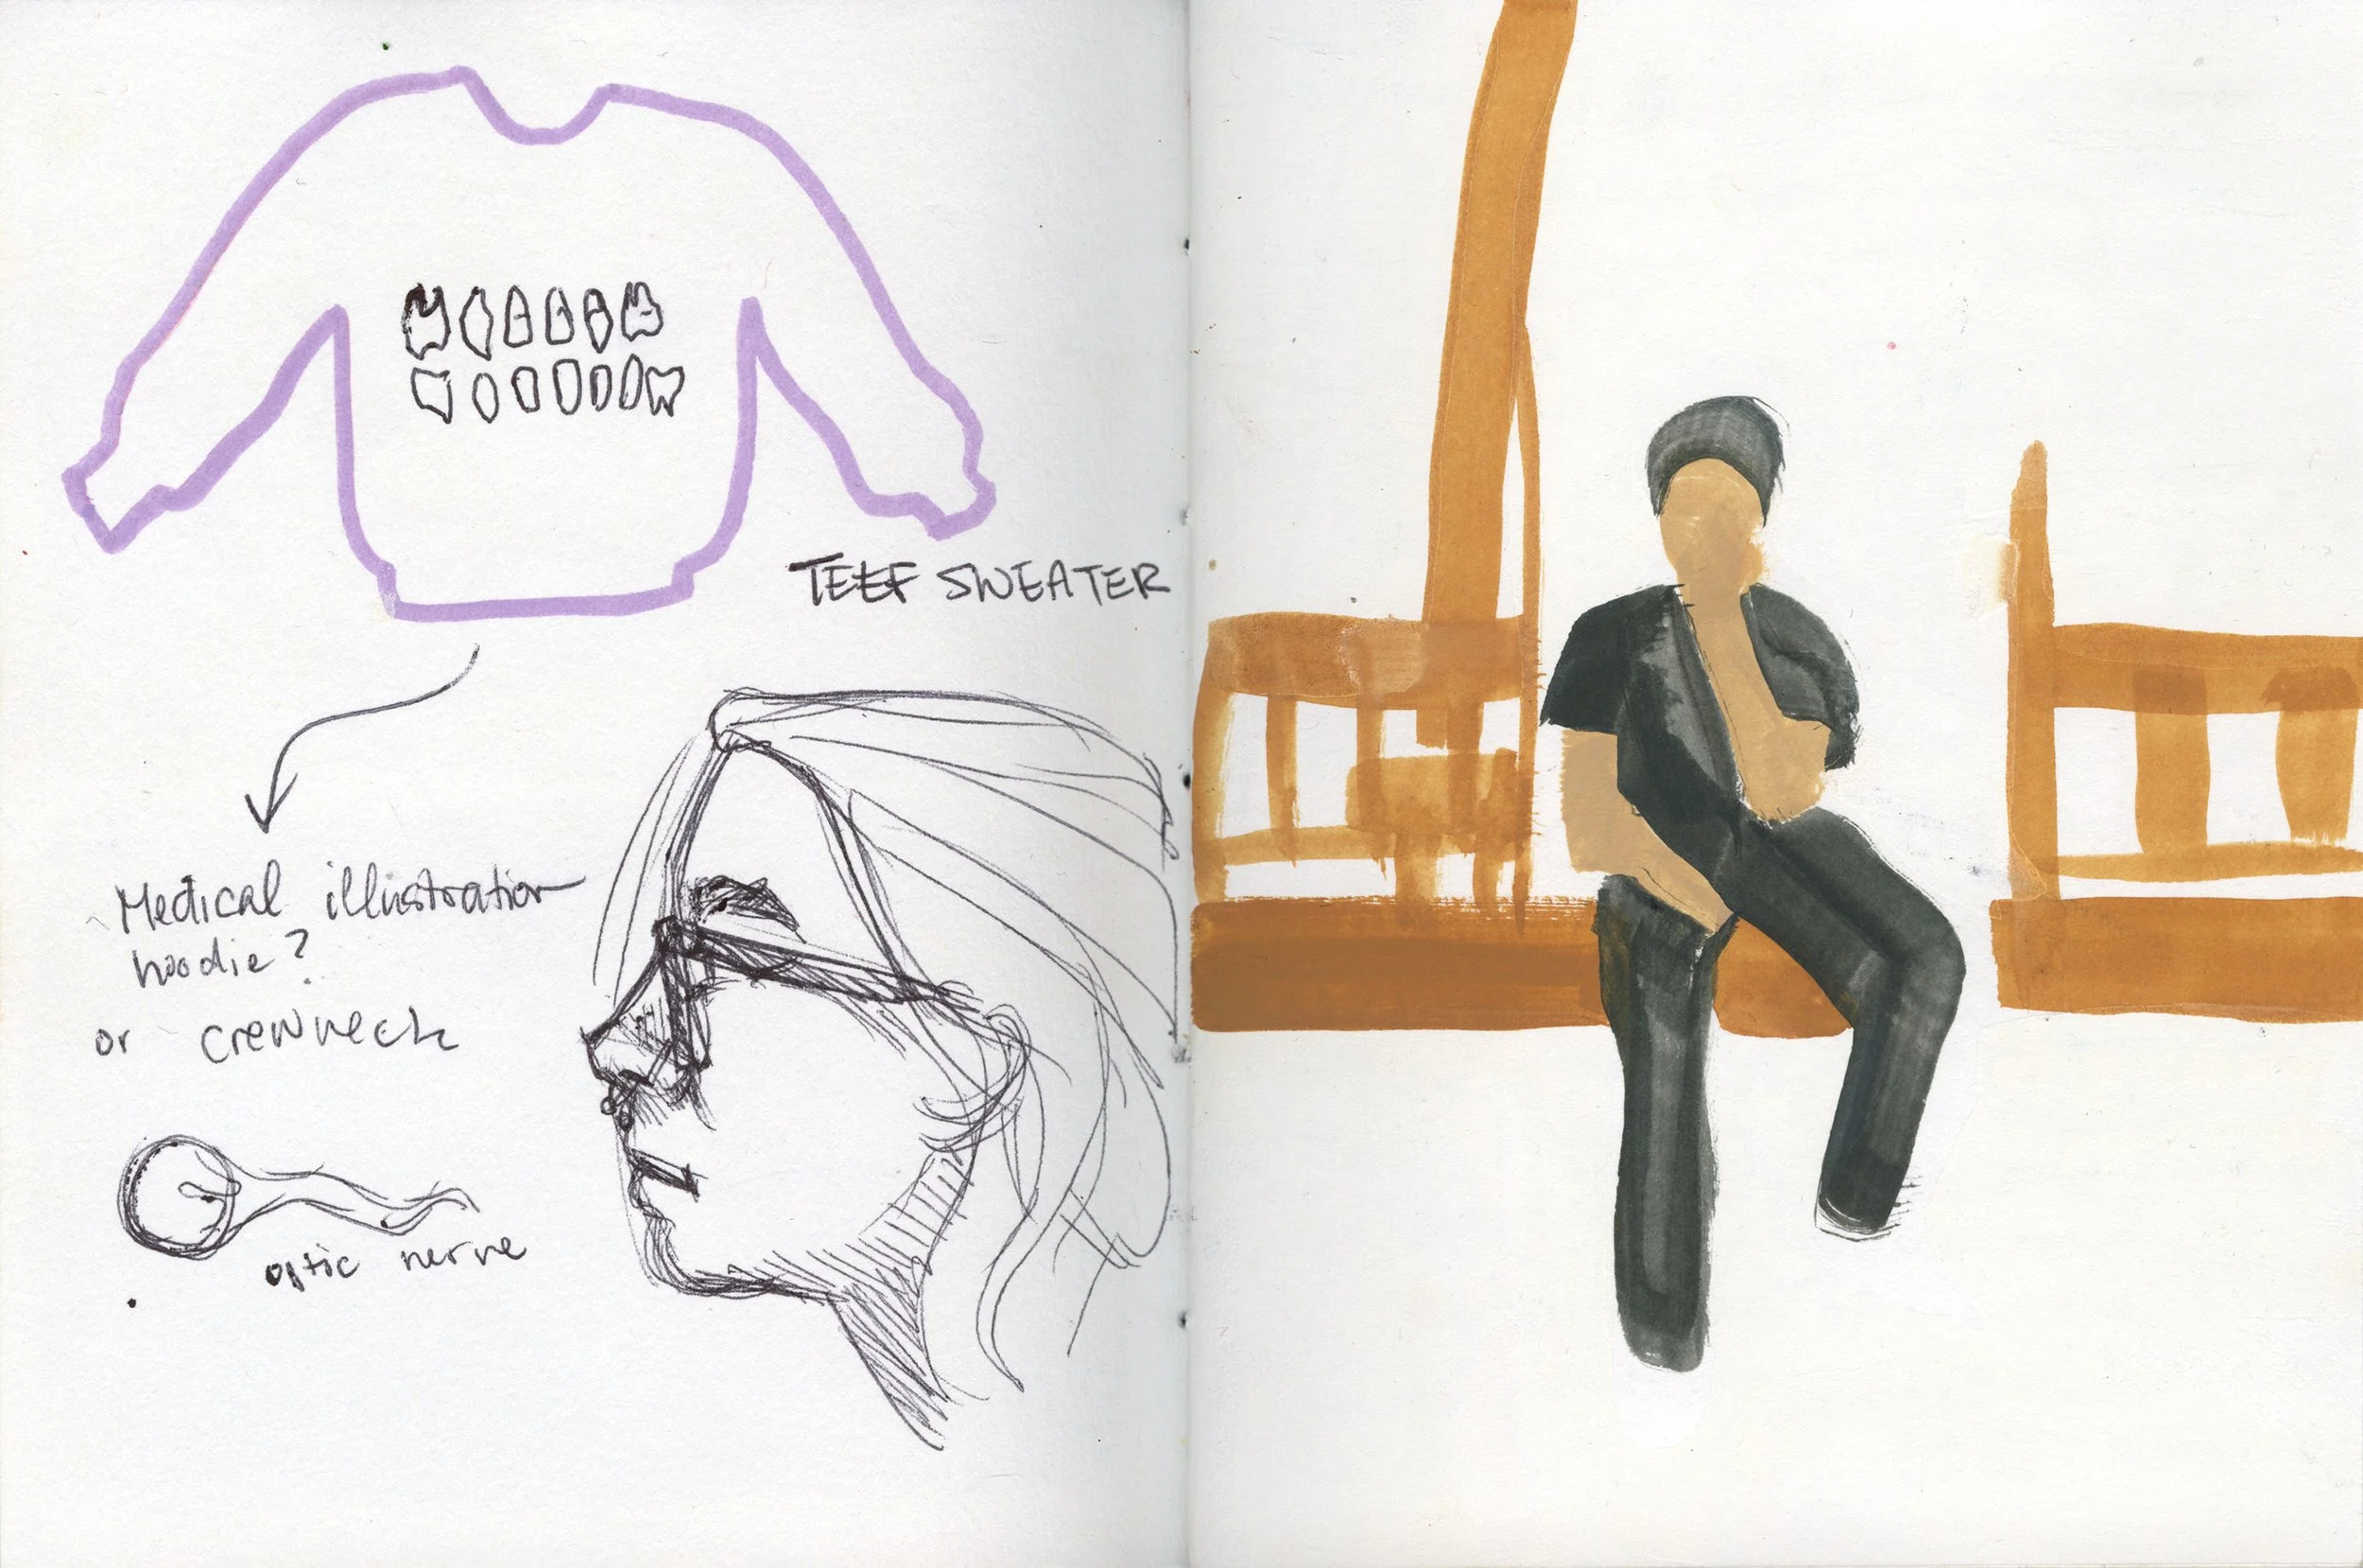 TEEF SWEATER
Medical illustration
hoodie?
or crewneck
optic nerve